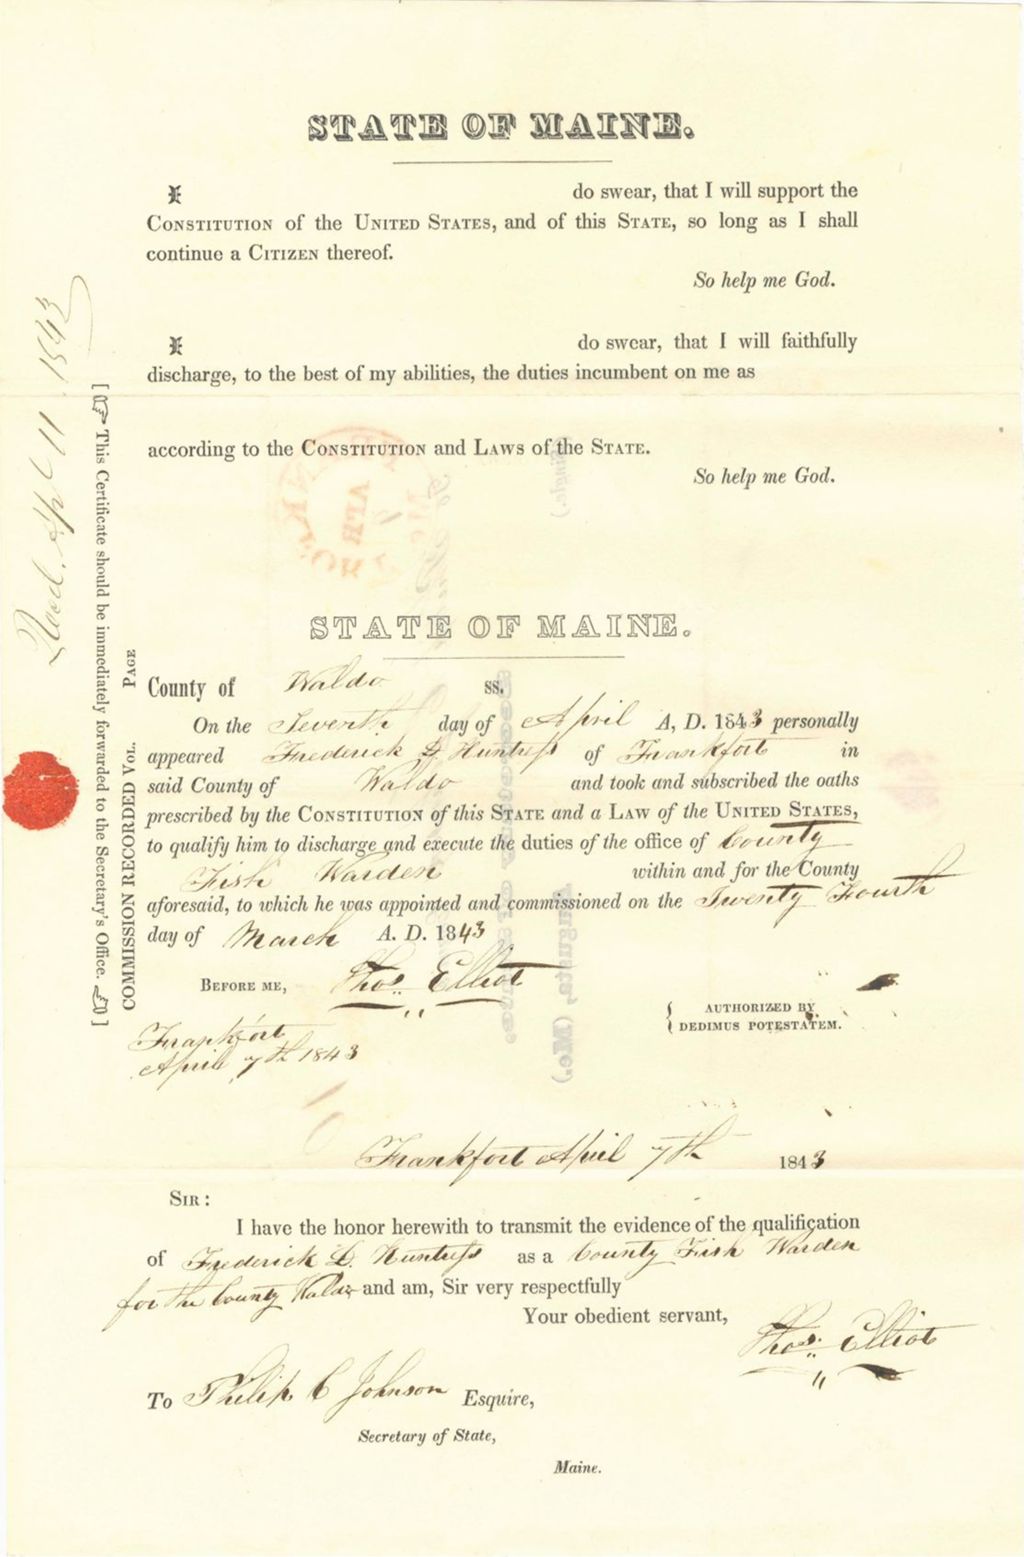 STATE OF MAINE.
I do swear, that I will support the
CONSTITUTION of the UNITED STATES, and of this STATE, so long as I shall
continue a CITIZEN thereof.
So help me God.
I do swear, that I will faithfully
discharge, to the best of my abilities, the duties incumbent on me as
according to the CONSTITUTION and LAWS of the STATE.
So help me God.
STATE OF MAINE.
County of Waldo ss.
On the Seventh day of April A, D. 1843 personally
appeared Frederick L. Huntress of Frankfort in
said County of Waldo and took and subscribed the oaths
prescribed by the CONSTITUTION of this STATE and a LAW of the UNITED STATES,
to qualify him to discharge and execute the duties of the office of County
Fish Warden within and for the County
aforesaid, to which he was appointed and commissioned on the Twenty Fourth
day of March A. D. 1843
BEFORE ME, Thos. Elliot
AUTHORIZED BY
DEDIMUS POTESTATEM.
Frankfort
April 7th 1843
Frankfort April 7th 1843
SIR:
I have the honor herewith to transmit the evidence of the qualification
of Frederick L. Huntress as a County Fish Warden
for the County Waldo and am, Sir very respectfully
Your obedient servant,
Thos. Elliot
To Philip C Johnson Esquire,
Secretary of State,
Maine.
COMMISSION RECORDED VOL. PAGE
[☞ This Certificate should be immediately forwarded to the Secretary's Office. ☜]
Recd. Apl 11 1843